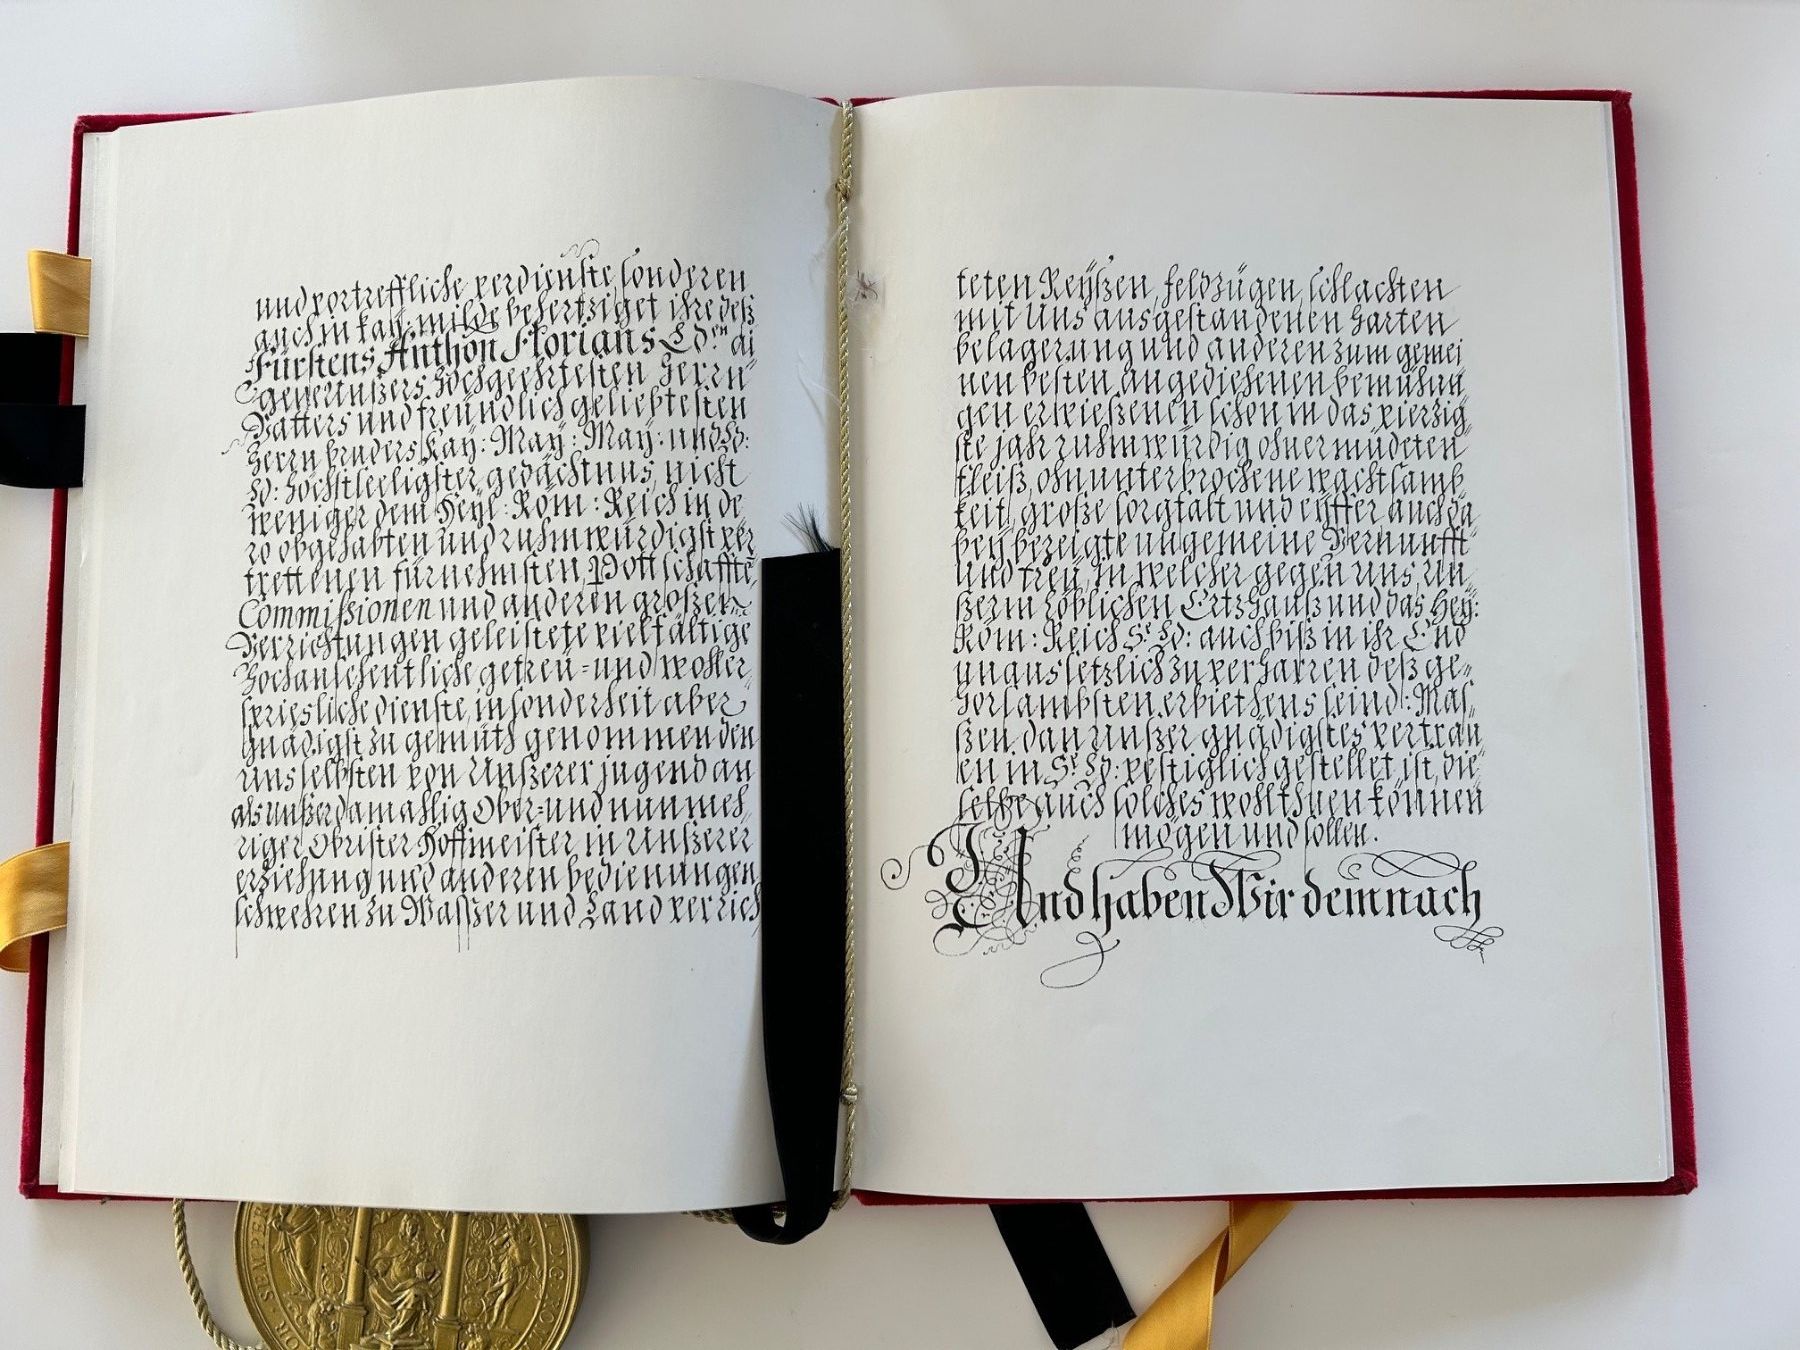 und vortreffliche verdienste, sonderen
auch in kaÿ: milde behertziget ihre deß
Fürstens Anthon Florians Ld:en di
gegen Unßers Hochgeehrtesten Herrn
Vatters und freündlich geliebtesten
Herrn bruders Kaÿ: Maÿ: Maÿ: und Ld:
Ld: Hochstseeligster gedächtnus, nicht
weniger dem Heÿl: Röm: Reich in de
ro obgehabten und ruhmwürdigst ver
trettenen fürnehmsten, Bottschaffte,
Commißionen und anderen großen
Verrichtungen geleistete vielfältige
Hochansehentliche getreü= und woller
spriesliche dienste, in sonderheit aber
gnädigst zu gemüth genommen den
Uns selbsten von Unßerer jugend an
als Unßer damahlig Ober= und nunmeh
riger Obrister Hoffmeister in Unßerer
erziehung und anderen bedienungen
schwehren zu Waßßer und Land verrich
teten Reÿßen, feldzügen, schlachten
mit Uns ausgestandenen Harten
belagerung und anderen zum gemei
nen besten angediehenen bemühun
gen erwießenen schon in das vierzig
ste jahr ruhmwürdig ohnermüdeten
fleiß, ohnunterbrochene wachtsamb
keit, große sorgfalt und eÿffer auch da
beÿ bezeigte ungemeine Vernunfft
und treü, In welcher gegen Uns, Un
ßerm Löblichen Ertzhauß und das Heÿ:
Röm: Reich Se Ld: auch biß in ihr End
unaussetzlich zu verharren deß ge
horsambsten erbiethens seind: Mas
ßen dan Unßer gnädigstes vertrau
en in Se Ld: vestiglich gestellet ist, die
selbe auch solches wohl thuen können
mögen und sollen.
Und haben Wir demnach
SEMPER